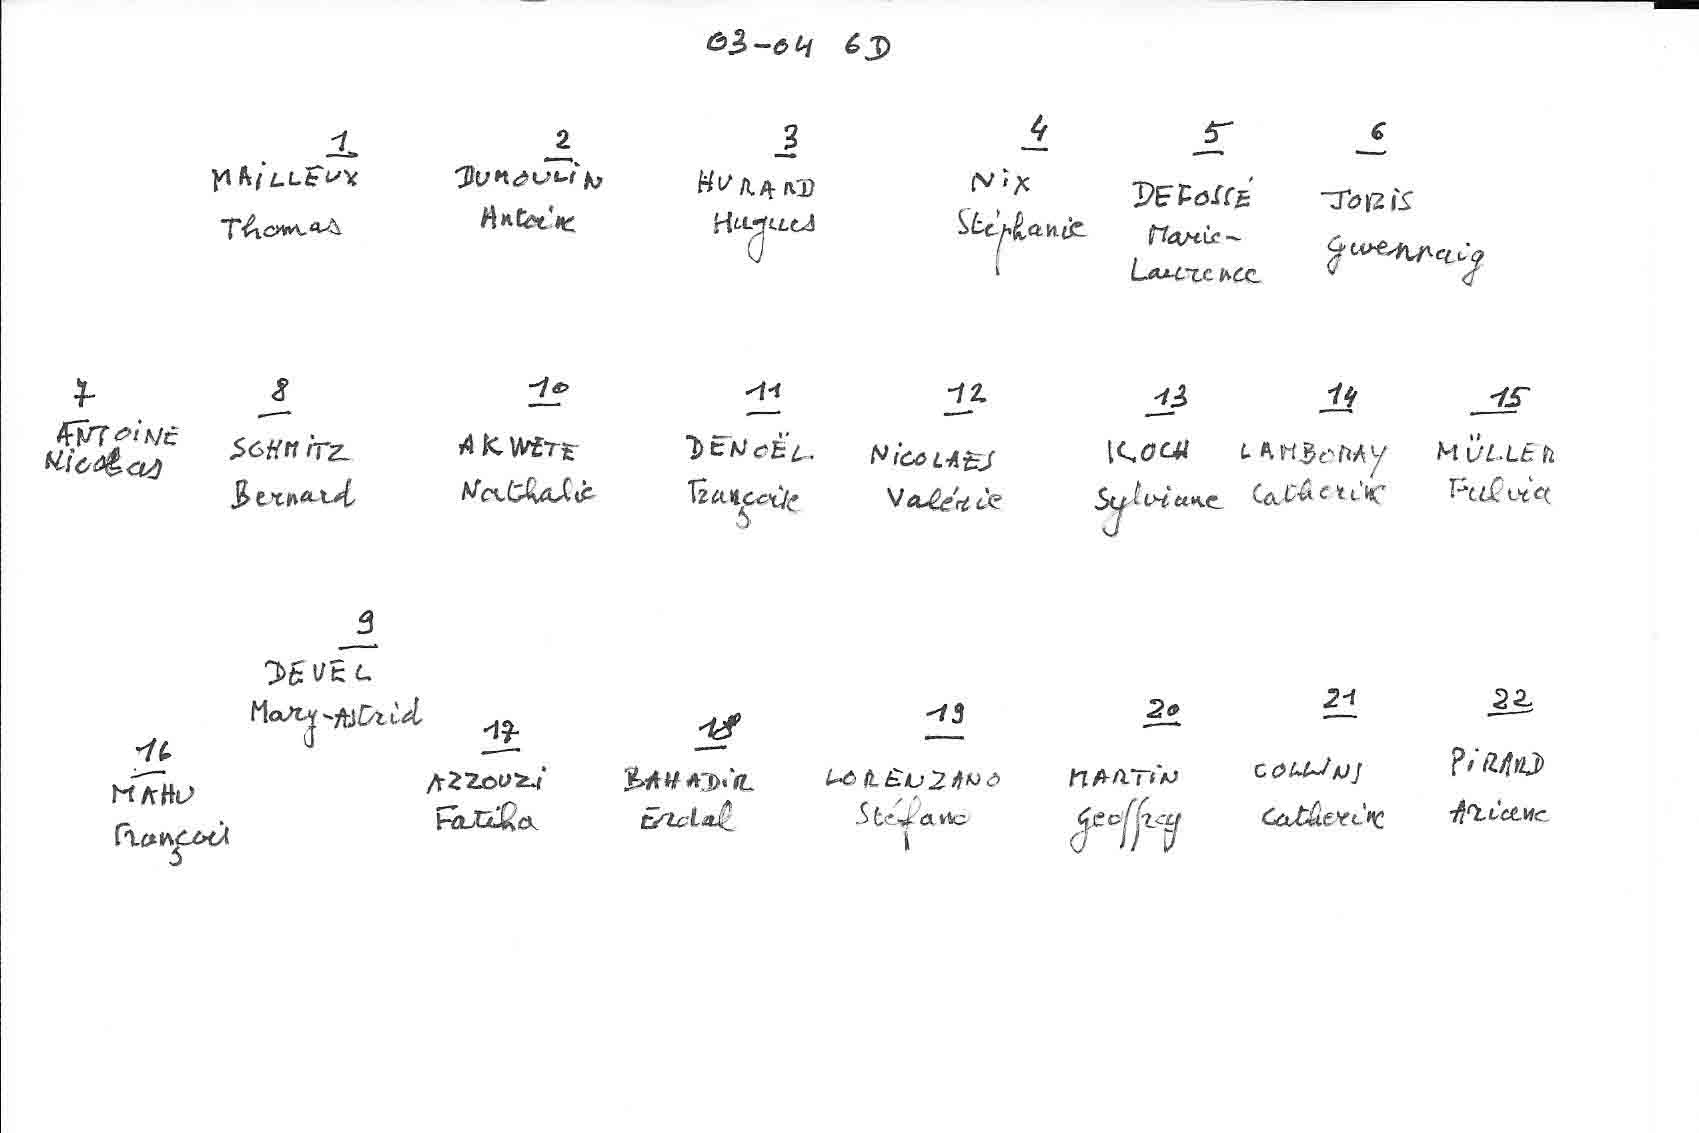 03-04 6D
1 2 3 4 5 6
MAILLEUX DUMOULIN HURARD NIX DEFOSSÉ JORIS
Thomas Antoine Hugues Stéphanie Marie- Gwennaig
Laurence
7 8 10 11 12 13 14 15
ANTOINE SCHMITZ AKWETE DENOËL NICOLAES KOCH LAMBORAY MÜLLER
Nicolas Bernard Nathalie Françoise Valérie Sylviane Catherine Fulvia
9
DEVEL
Mary-Astrid
16 17 18 19 20 21 22
MAHU AZZOUZI BAHADIR LORENZANO MARTIN COLLINS PIRARD
François Fatiha Erdal Stéfano Geoffrey Catherine Ariane